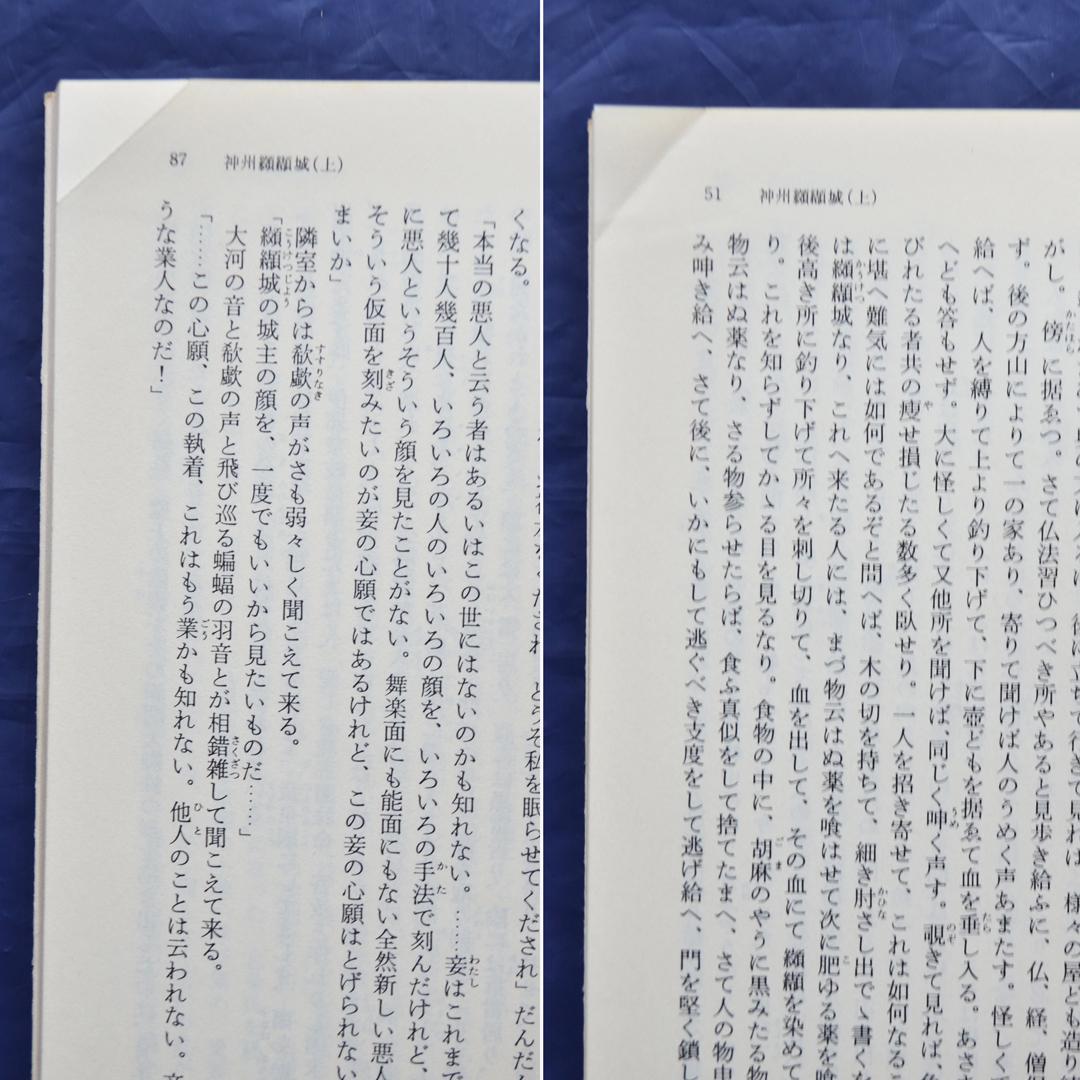 87
神州纐纈城(上)
くなる。
「本当の悪人と云う者はあるいはこの世にはないのかも知れない。……妾はこれまで
わたし
て幾十人幾百人、いろいろの人のいろいろの顔を、いろいろの手法で刻んだけれど、
かた
に悪人というそういう顔を見たことがない。舞楽面にも能面にもない全然新しい悪人
そういう仮面を刻みたいのが妾の心願ではあるけれど、この妾の心願はとげられない
きざ
まいか」
隣室からは欷歔の声がさも弱々しく聞こえて来る。
すすりなき
「纐纈城の城主の顔を、一度でもいいから見たいものだ……」
こうけつじょう
大河の音と欷歔の声と飛び巡る蝙蝠の羽音とが相錯雑して聞こえて来る。
さくざつ
「……この心願、この執着、これはもう業かも知れない。他人のことは云われない。
ごう
ひと
うな業人なのだ!」
51
神州纐纈城(上)
がし。傍に据ゑつ。さて仏法習ひつべき所やあると見歩き給ふに、仏、経、僧
かたはら
ず。後の方山によりて一の家あり、寄りて聞けば人のうめく声あまたす。怪しく
給へば、人を縛りて上より釣り下げて、下に壺どもを据ゑて血を垂し入る。あさ
たら
へども答もせず。大に怪しくて又他所を聞けば、同じく呻く声す。覗きて見れば、
うめ
のぞ
びれたる者共の瘦せ損じたる数多く臥せり。一人を招き寄せて、これは如何なる
や
に堪へ難気には如何であるぞと問へば、木の切を持ちて、細き肘さし出でゝ書く
かひな
は纐纈城なり、これへ来たる人には、まづ物云はぬ薬を喰はせて次に肥ゆる薬を喰
かうけつ
こ
後高き所に釣り下げて所々を刺し切りて、血を出して、その血にて纐纈を染めて
り。これを知らずしてかゝる目を見るなり。食物の中に、胡麻のやうに黒みたる物
ごま
物云はぬ薬なり、さる物参らせたらば、食ふ真似をして捨てたまへ、さて人の物申
み呻き給へ、さて後に、いかにもして逃ぐべき支度をして逃げ給へ、門を堅く鎖し